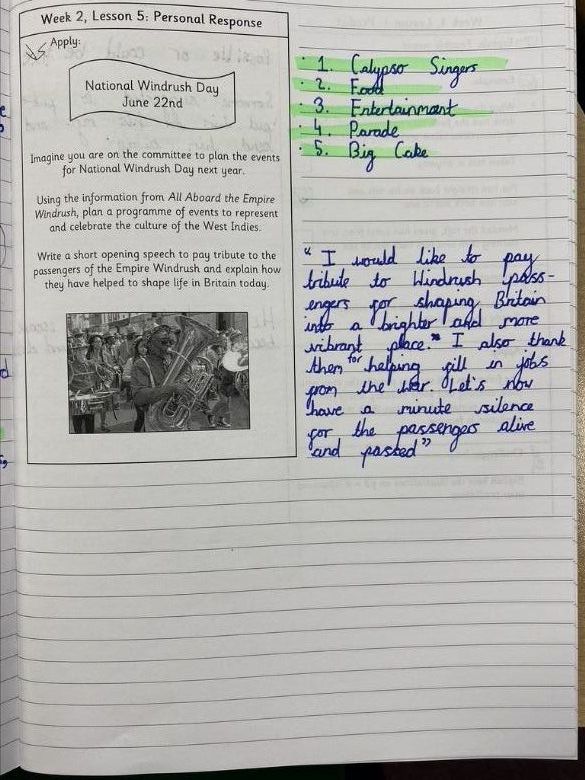 Week 2, Lesson 5: Personal Response
Apply:
National Windrush Day
June 22nd
Imagine you are on the committee to plan the events
for National Windrush Day next year.
Using the information from All Aboard the Empire
Windrush, plan a programme of events to represent
and celebrate the culture of the West Indies.
Write a short opening speech to pay tribute to the
passengers of the Empire Windrush and explain how
they have helped to shape life in Britain today.
· 1. Calypso Singers
· 2. Food
· 3. Entertainment
· 4. Parade
· 5. Big Cake
" I would like to pay
tribute to Windrush pass-
engers for shaping Britain
into a brighter and more
vibrant place. I also thank
them for helping fill in jobs
from the war. Let's now
have a minute silence
for the passengers alive
and passed"